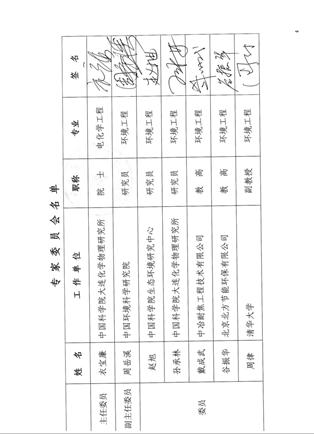 专家委员会名单
姓 名 工作单位 职称 专业 签 名
主任委员 衣宝廉 中国科学院大连化学物理研究所 院 士 电化学工程
副主任委员 周岳溪 中国环境科学研究院 研究员 环境工程
委员 赵旭 中国科学院生态环境研究中心 研究员 环境工程 赵旭
孙承林 中国科学院大连化学物理研究所 研究员 环境工程
戴成武 中冶耐焦工程技术有限公司 教 高 环境工程
谷振华 北京北方节能环保有限公司 教 高 环境工程
周律 清华大学 副教授 环境工程